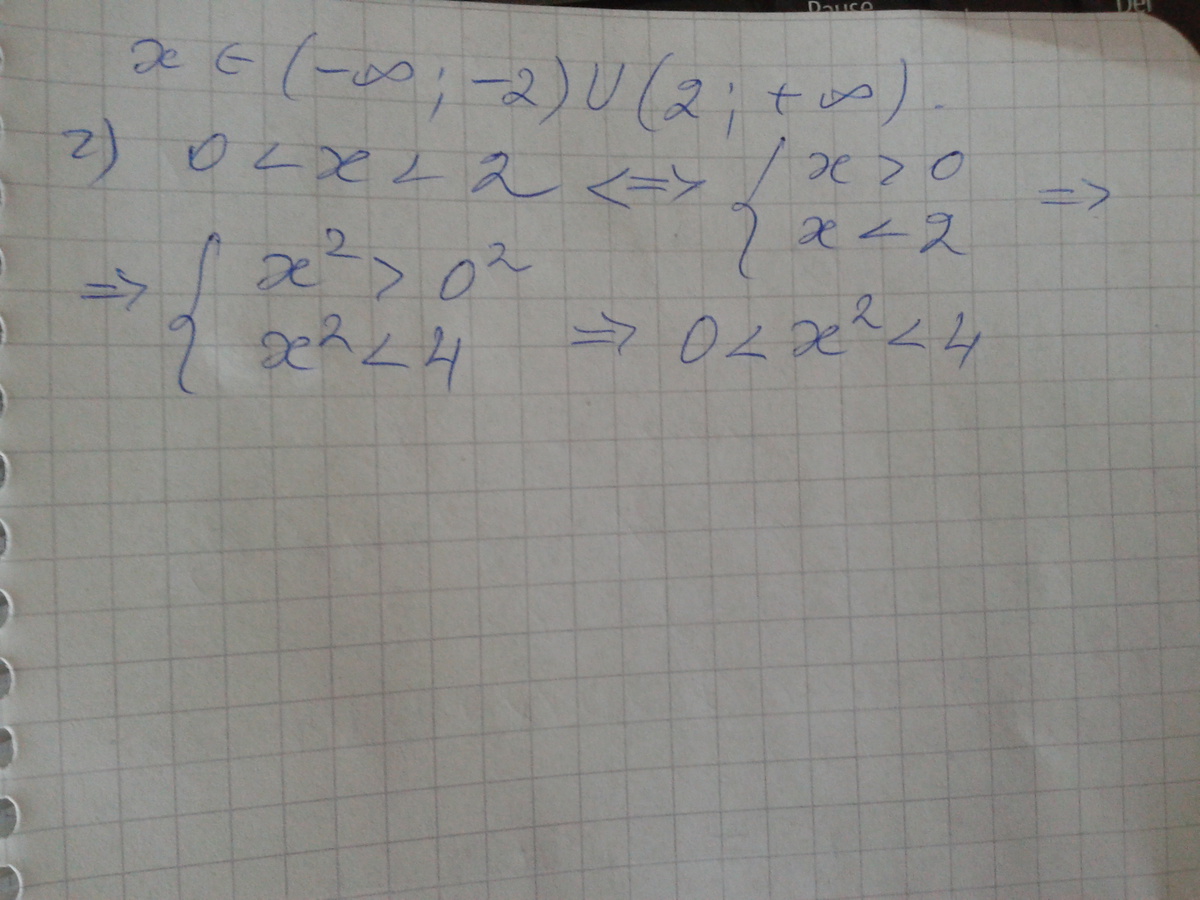 Pause
Del
x ∈ (-∞; -2) ∪ (2; +∞).
г) 0 < x < 2 <=> { x > 0 x < 2 =>
=> { x² > 0² x² < 4 => 0 < x² < 4